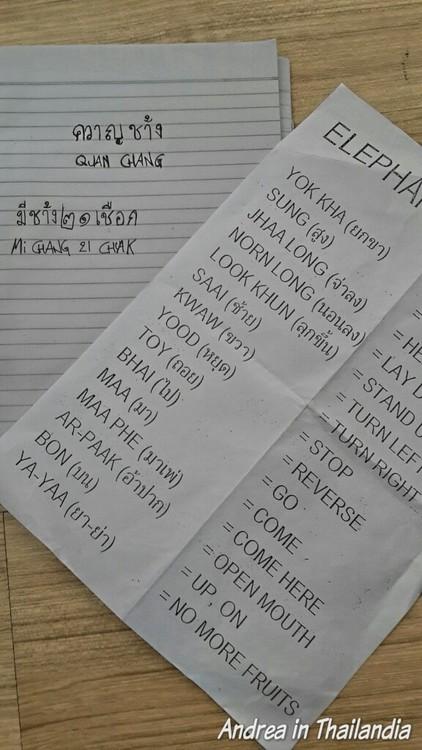 ควาญช้าง
QUAN CHANG
มีช้าง ๒๑ เชือก
Mi CHANG 21 CHAK
ELEPHA
YOK KHA (ยกขา)
SUNG (สูง)
JHAA LONG (จ่าลง) =
NORN LONG (นอนลง) = LAY D
LOOK KHUN (ลุกขึ้น) = STAND U
SAAI (ซ้าย) = TURN LEFT
KWAW (ขวา) = TURN RIGHT
YOOD (หยุด) = STOP
TOY (ถอย) = REVERSE
BHAI (ไป) = GO
MAA (มา) = COME
MAA PHE (มาเพ่) = COME HERE
AR-PAAK (อ้าปาก) = OPEN MOUTH
BON (บน) = UP, ON
YA-YAA (ยา-ย่า) = NO MORE FRUITS
Andrea in Thailandia